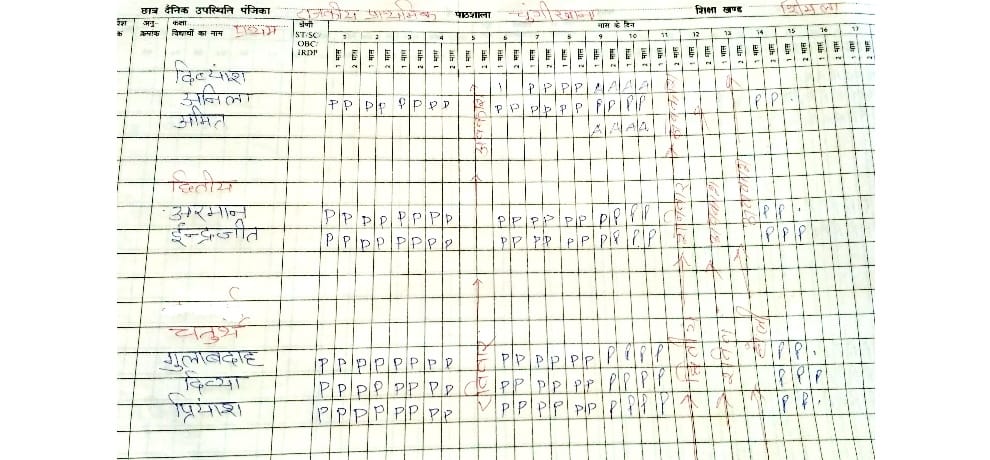 छात्र दैनिक उपस्थिति पंजिका राजकीय प्राथमिक पाठशाला शिक्षा खण्ड शिमला
अनु- कक्षा प्रथम श्रेणी मास के दिन
क्रमांक विद्यार्थी का नाम ST/SC/ 1 2 3 4 5 6 7 8 9 10 11 12 13 14 15 16 17
OBC/
IRDP
दिव्यांश P P P P A A A A
अनिला P P P P P P P P P P P P P P P P P P P P
अमित A A A A
द्वितीय
अरमान P P P P P P P P P P P P P P P P P P P P
ईन्द्रजीत P P P P P P P P P P P P P P P P P P P P P
चतुर्थ
गुलाबदाह P P P P P P P P P P P P P P P P P P P P
दिव्या P P P P P P P P P P P P P P P P P P P P P
प्रियांश P P P P P P P P P P P P P P P P P P P P
अवकाश
रविवार
द्वितीय शनिवार अवकाश
रविवार अवकाश
होली अवकाश